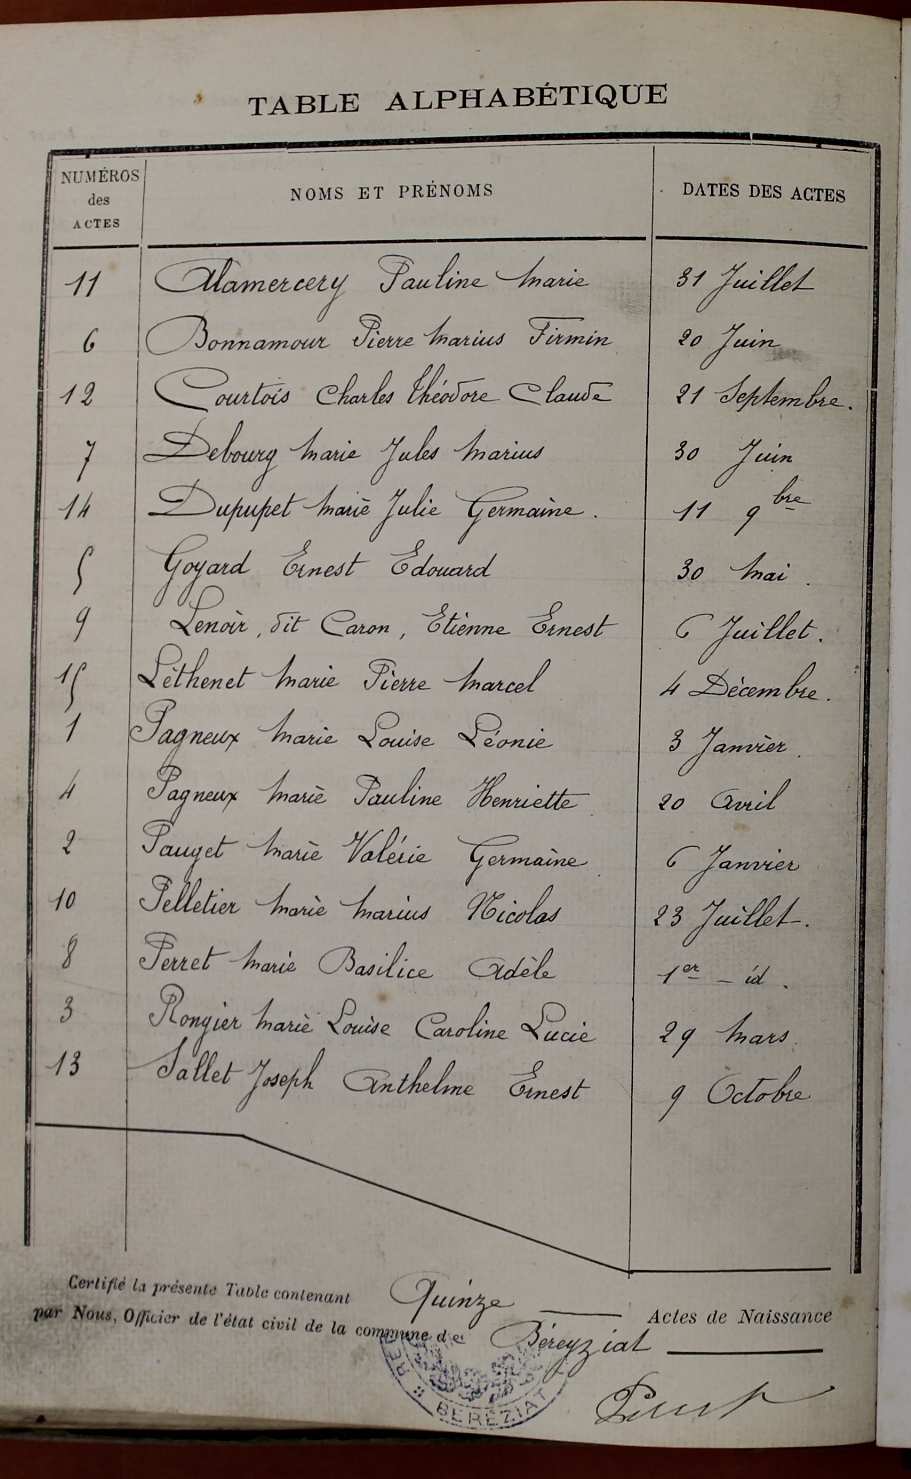 TABLE ALPHABÉTIQUE
NUMÉROS des ACTES NOMS ET PRÉNOMS DATES DES ACTES
11 Alamercery Pauline Marie 31 Juillet
6 Bonnamour Pierre Marius Firmin 20 Juin
12 Courtois Charles Théodore Claude 21 Septembre.
7 Debourg Marie Jules Marius 30 Juin
14 Dupupet Marie Julie Germaine. 11 9bre
5 Goyard Ernest Edouard 30 Mai.
9 Lenoir, dit Caron, Etienne Ernest 6 Juillet.
15 Léthenet Marie Pierre Marcel 4 Décembre.
1 Pagneux Marie Louise Léonie 3 Janvier.
4 Pagneux Marie Pauline Henriette 20 Avril
2 Pauget Marie Valérie Germaine 6 Janvier
10 Pelletier Marie Marius Nicolas 23 Juillet.
8 Perret Marie Basilice Adèle 1er – id.
3 Rongier Marie Louise Caroline Lucie 29 Mars
13 Sallet Joseph Anthelme Ernest 9 Octobre
Certifié la présente Table contenant Quinze Actes de Naissance
par Nous, Officier de l'état civil de la commune de Béreyziat
BEREZIAT